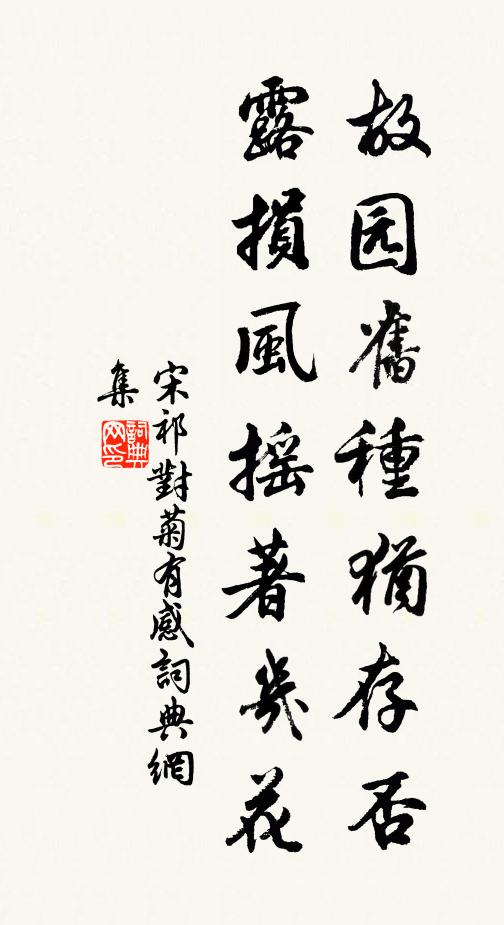 故园舊種猶存否
露損風摇著幾花
宋祁對菊有感詞典網
集
詞典
网印